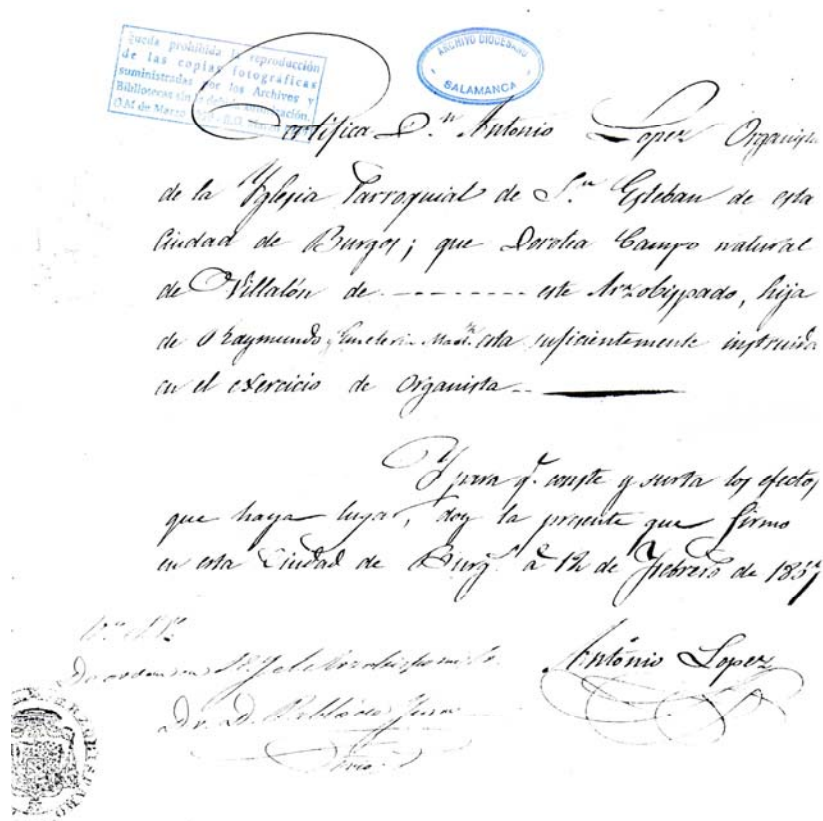 Queda prohibida la reproducción
de las copias fotográficas
suministradas por los Archivos y
Bibliotecas sin la debida autorización.
O.M de Marzo
ARCHIVO DIOCESANO
SALAMANCA
Certifica D.n Antonio Lopez Organista
de la Yglesia Parroquial de S.n Esteban de esta
Ciudad de Burgos; que Dorotea Campo natural
de Villalón de - - - - - - - - - este Arzobispado, hija
de Raymundo y Emeteria esta suficientemente instruida
en el exercicio de Organista
Y para q.e conste y surta los efectos
que haya lugar, doy la presente que firmo
en esta Ciudad de Burg.s a 12 de Febrero de 1857
Antonio Lopez
Dr. D.
Srio.